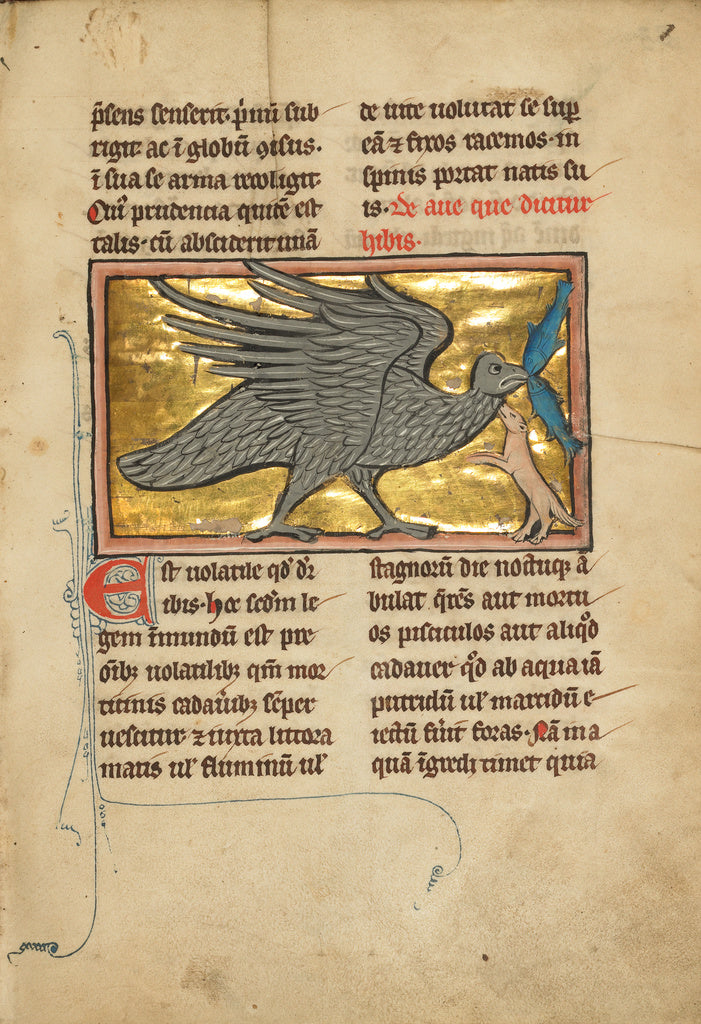 p̄sens senserit· p̄mū sub
rigit ac ī globū ꝯisus·
ī sua se arma recolligit·
Cuiꝰ prudencia quidē est
talis· cū absciderit unā
de uite uolutat se suꝑ
eā ⁊ fixos racemos· in
spinis portat natis su
is· De aue que dicitur
hibis·
Est uolatile qd̓ dr̄
ibis· hec sedm̄ le
gem īmundū est pre
oīb; uolatilib; qm̄ mor
ticinis cadau̓ib; sēper
uescitur ⁊ iuxta littora
maris ul̓ fluminū ul̓
stagnorū die noctuq; ā
bulat q̄rēs aut mortu
os pisciculos aut aliqd̓
cadauer qd̓ ab aqua iā
putridū ul̓ marcidū e
iectū fu̓it foras· Nā in a
quā īgredi timet quia